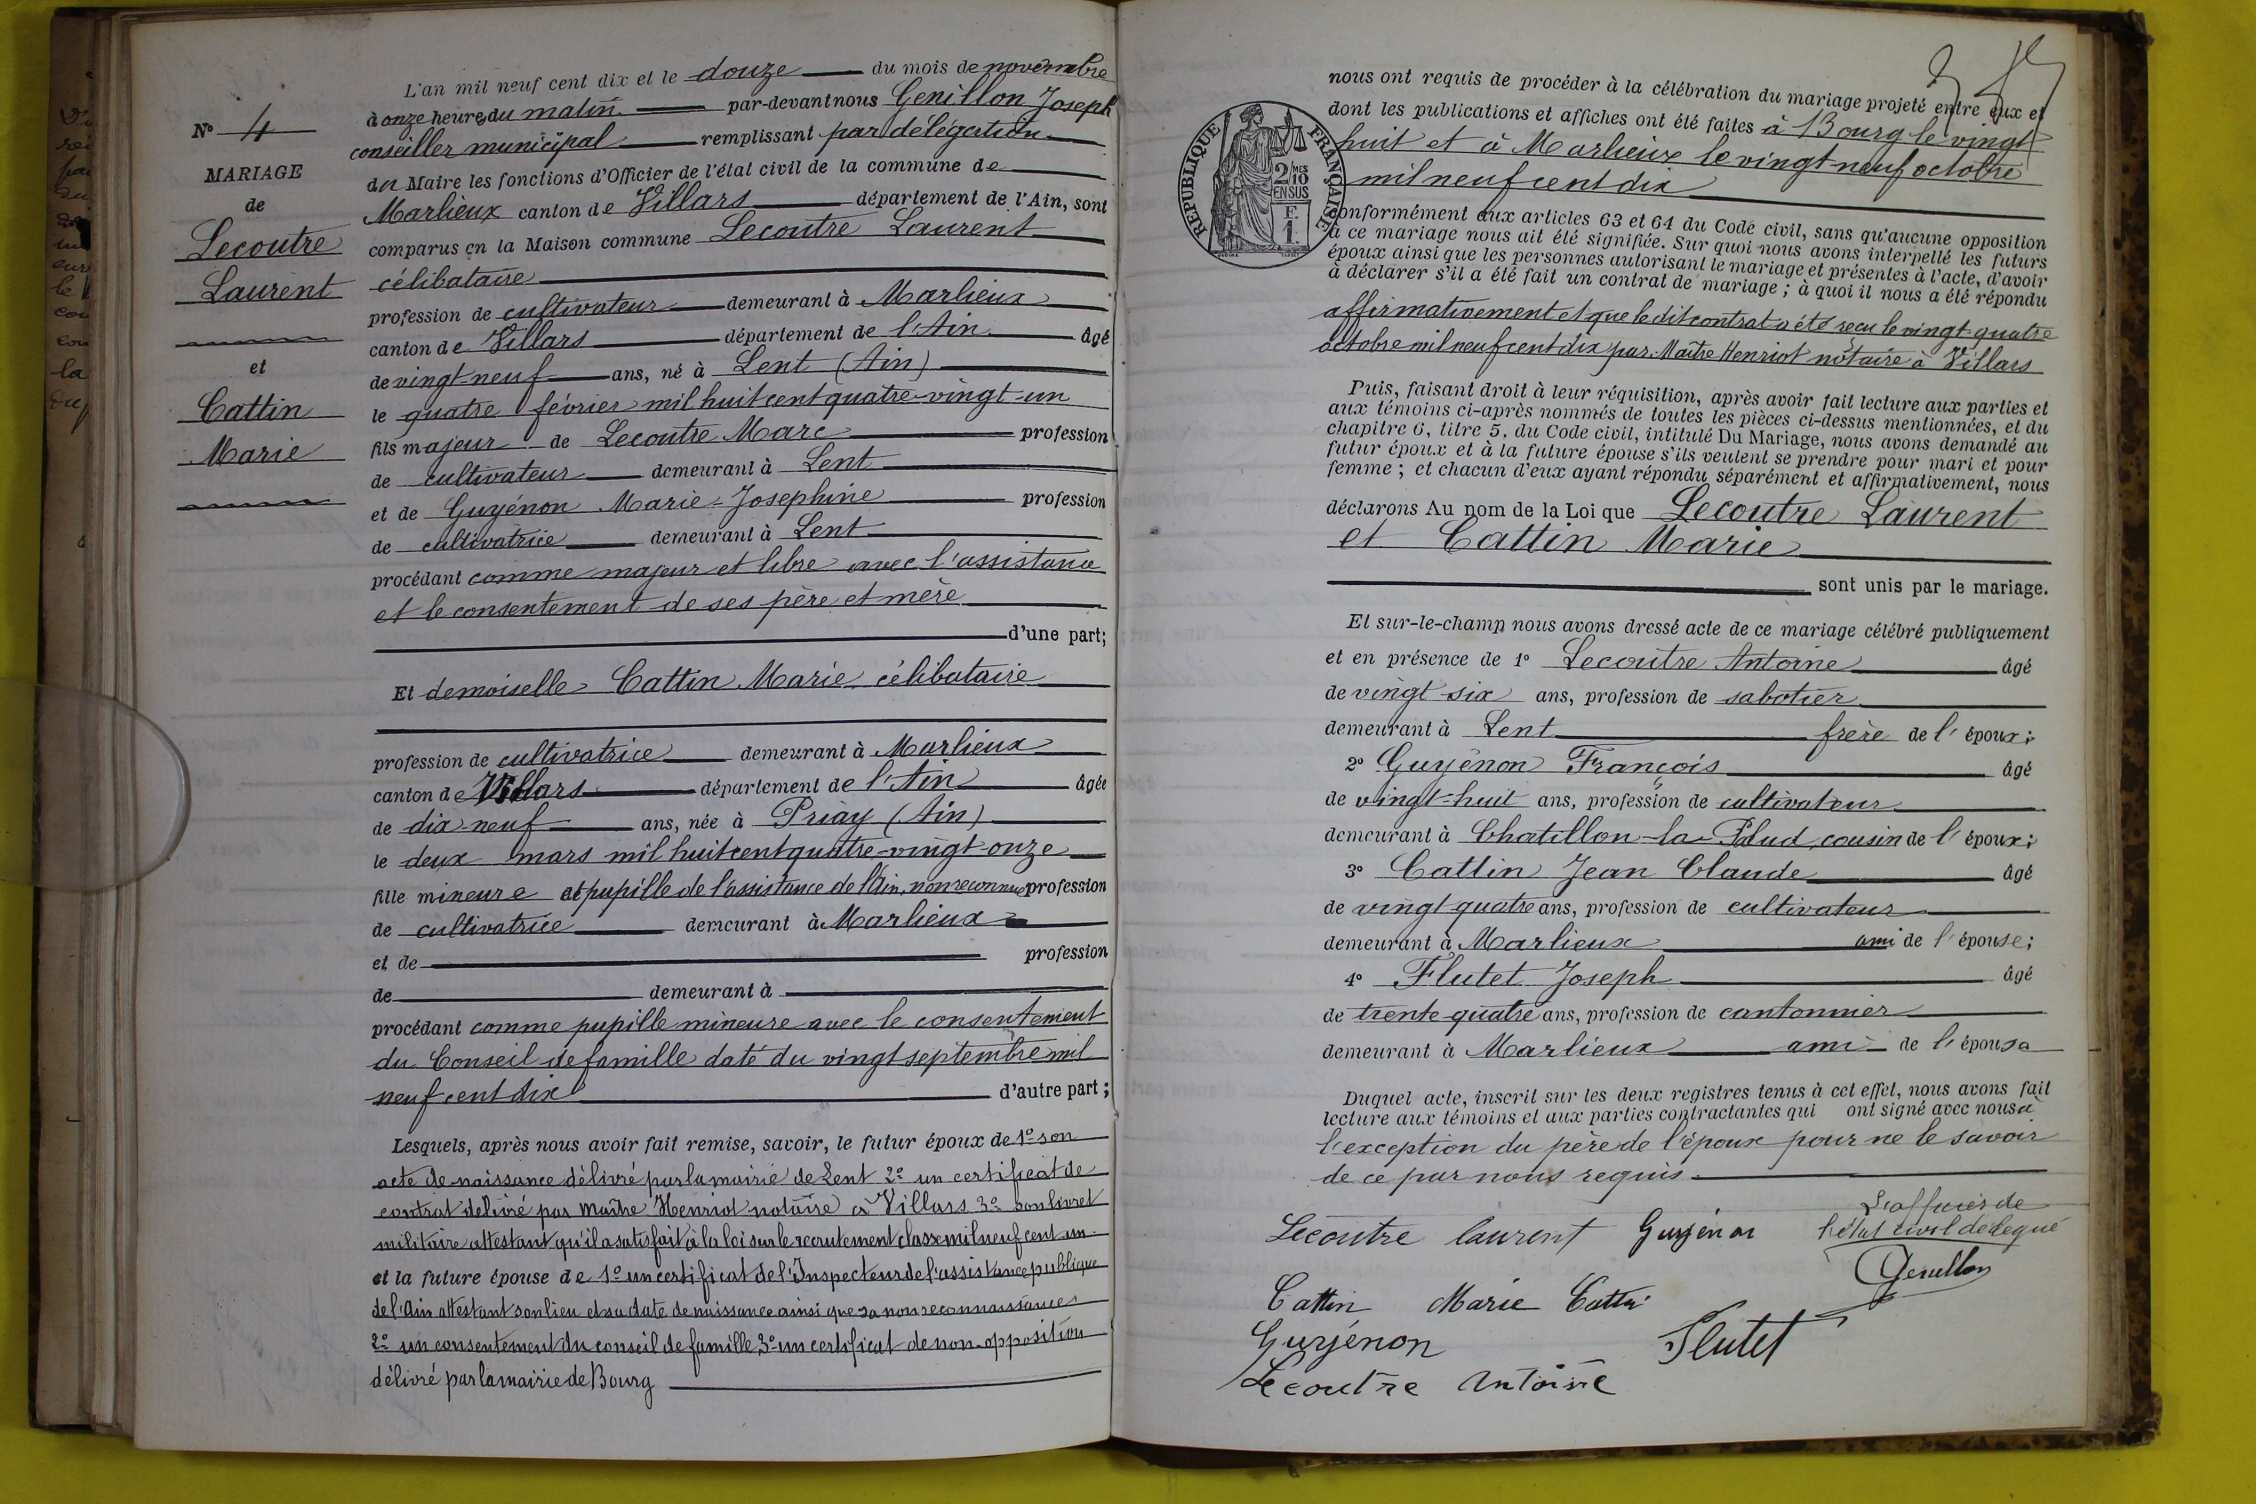 N° 4
MARIAGE
de
Lecoutre
Laurent
et
Cattin
Marie
L'an mil neuf cent dix et le douze du mois de novembre
à onze heures du matin par-devant nous Genillon Joseph
conseiller municipal remplissant par délégation
du Maire les fonctions d'Officier de l'état civil de la commune de
Marlieux canton de Villars département de l'Ain, sont
comparus en la Maison commune Lecoutre Laurent
célibataire
profession de cultivateur demeurant à Marlieux
canton de Villars département de l'Ain âgé
de vingt-neuf ans, né à Lent (Ain)
le quatre février mil huit cent quatre-vingt-un
fils majeur de Lecoutre Marc profession
de cultivateur demeurant à Lent
et de Guyénon Marie-Josephine profession
de cultivatrice demeurant à Lent
procédant comme majeur et libre avec l'assistance
et le consentement de ses père et mère
d'une part;
Et demoiselle Cattin Marie célibataire
profession de cultivatrice demeurant à Marlieux
canton de Villars département de l'Ain âgée
de dix neuf ans, née à Priay (Ain)
le deux mars mil huit cent quatre-vingt-onze
fille mineure et pupille de l'assistance de l'Ain, non reconnue profession
de cultivatrice demeurant à Marlieux
et de profession
de demeurant à
procédant comme pupille mineure avec le consentement
du Conseil de famille daté du vingt septembre mil
neuf cent dix d'autre part;
Lesquels, après nous avoir fait remise, savoir, le futur époux de 1° son
acte de naissance délivré par la mairie de Lent 2° un certificat de
contrat délivré par Maître Henriot notaire à Villars 3° son livret
militaire attestant qu'il a satisfait à la loi sur le recrutement classe mil neuf cent un
et la future épouse de 1° un certificat de l'Inspecteur de l'assistance publique
de l'Ain attestant son lieu et sa date de naissance ainsi que sa non reconnaissance
2° un consentement du conseil de famille, 3° un certificat de non-opposition
délivré par la mairie de Bourg
RÉPUBLIQUE FRANÇAISE
2/10 MES
EN SUS
F.
1.
nous ont requis de procéder à la célébration du mariage projeté entre eux et
dont les publications et affiches ont été faites à Bourg le vingt
huit et à Marlieux le vingt-neuf octobre
mil neuf cent dix
conformément aux articles 63 et 64 du Code civil, sans qu'aucune opposition
à ce mariage nous ait été signifiée. Sur quoi nous avons interpellé les futurs
époux ainsi que les personnes autorisant le mariage et présentes à l'acte, d'avoir
à déclarer s'il a été fait un contrat de mariage; à quoi il nous a été répondu
affirmativement et que le dit contrat a été reçu le vingt-quatre
octobre mil neuf cent dix par Maître Henriot notaire à Villars
Puis, faisant droit à leur réquisition, après avoir fait lecture aux parties et
aux témoins ci-après nommés de toutes les pièces ci-dessus mentionnées, et du
chapitre 6, titre 5, du Code civil, intitulé Du Mariage, nous avons demandé au
futur époux et à la future épouse s'ils veulent se prendre pour mari et pour
femme; et chacun d'eux ayant répondu séparément et affirmativement, nous
déclarons Au nom de la Loi que Lecoutre Laurent
et Cattin Marie
sont unis par le mariage.
Et sur-le-champ nous avons dressé acte de ce mariage célébré publiquement
et en présence de 1° Lecoutre Antoine âgé
de vingt-six ans, profession de sabotier
demeurant à Lent frère de l'époux;
2° Guyénon François âgé
de vingt-huit ans, profession de cultivateur
demeurant à Chatillon-la-Palud cousin de l'époux;
3° Cattin Jean Claude âgé
de vingt-quatre ans, profession de cultivateur
demeurant à Marlieux ami de l'épouse;
4° Flutet Joseph âgé
de trente-quatre ans, profession de cantonnier
demeurant à Marlieux ami de l'épouse
Duquel acte, inscrit sur les deux registres tenus à cet effet, nous avons fait
lecture aux témoins et aux parties contractantes qui ont signé avec nous à
l'exception du père de l'époux pour ne le savoir
de ce par nous requis
Lecoutre laurent Guyénon
L'officier de
l'état civil délégué
Genillon
Cattin Marie Cattin
Guyénon Flutet
Lecoutre Antoine